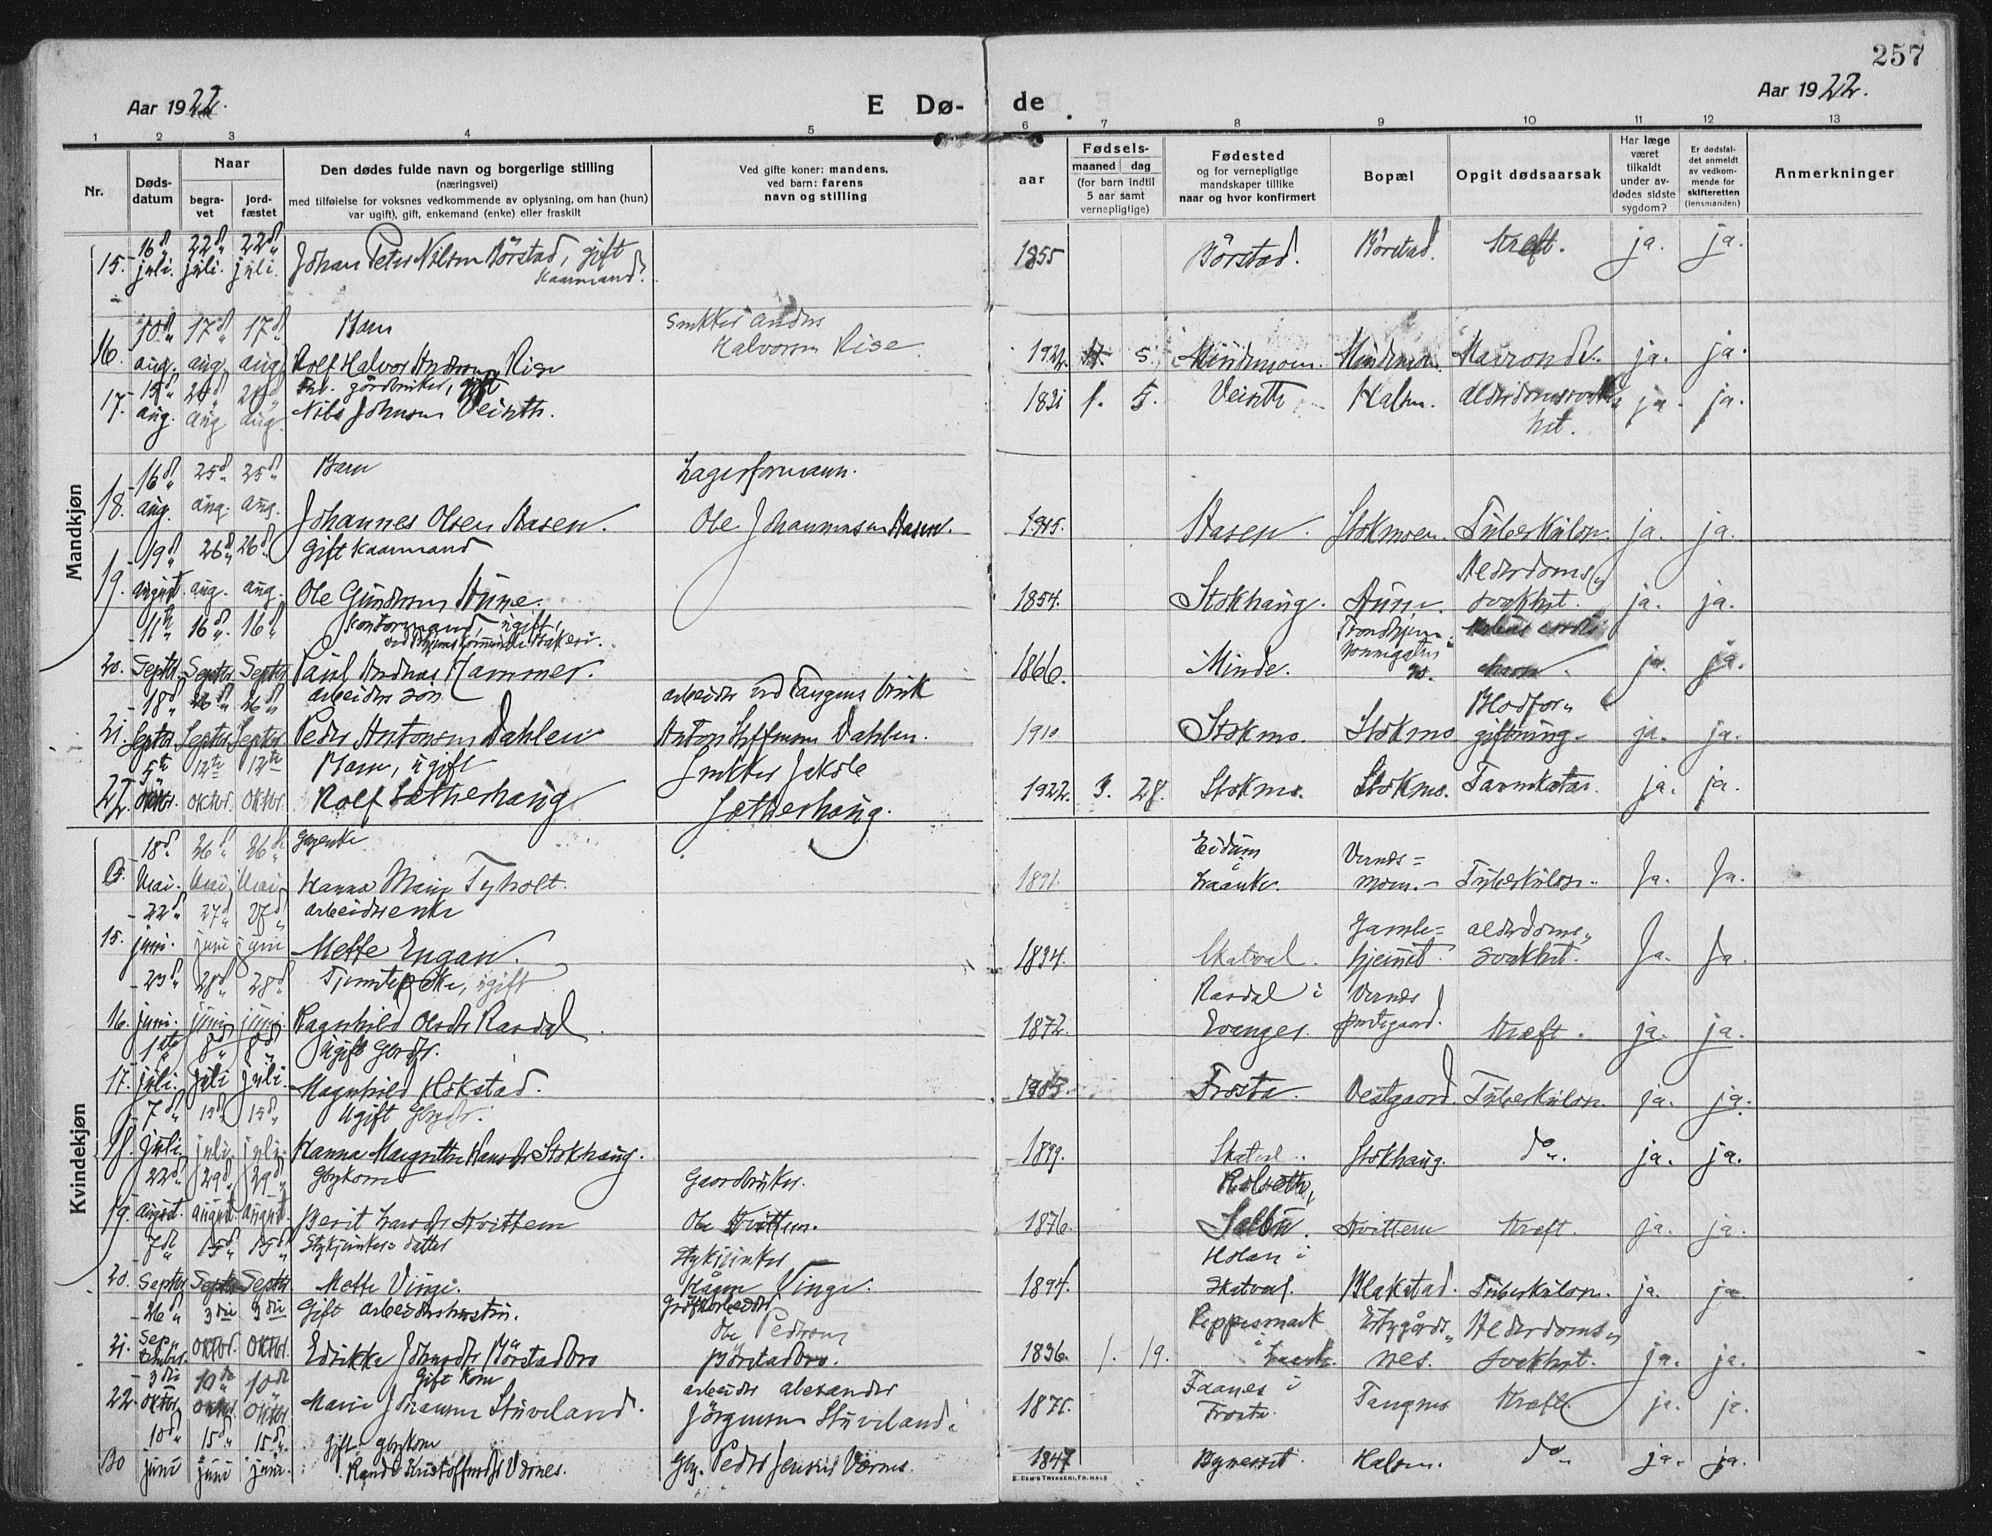 257
Aar 1922.
E Dø-
de.
Aar 1922.
1 2 3 4 5 6 7 8 9 10 11 12 13
Nr.
Døds-
datum
Naar
begra-
vet
jord-
fæstet
Den dødes fulde navn og borgerlige stilling
(næringsvei)
med tilføielse for voksnes vedkommende av oplysning, om han (hun)
var ugift), gift, enkemand (enke) eller fraskilt
Ved gifte koner: mandens,
ved barn: farens
navn og stilling
aar
Fødsels-
maaned dag
(for barn indtil
5 aar samt
vernepligtige)
Fødested
og for vernepligtige
mandskaper tillike
naar og hvor konfirmert
Bopæl
Opgit dødsaarsak
Har læge
været
tilkaldt
under av-
dødes sidste
sygdom?
Er dødsfal-
det anmeldt
av vedkom-
mende for
skifteretten
(lensmanden)
Anmerkninger
Mandkjøn
15. 16d juli. 22d juli. 22d juli. Johan Peter Nilsen Børstad, gift
kaarmand. 1855 Børstad. Børstad. Kræft. ja. ja.
16. 10d aug. 17d aug. 17d aug. Barn
Rolf Halvor Andersen Rise
Snikker Anders
Halvorsen Rise 1922. 5. Mindemoen. Mindemoen. ja. ja.
17. 15d aug. 20d aug. 20d aug. gårdbruker, gift
Nils Johnsen Veinth. 1831 1. 5. Veinth Halsen. Alderdomssvak
het. ja. ja.
18. 16d aug. 25d aug. 25d aug. Barn
Johannes Olsen Aasen.
Lagerformann.
Ole Johannesen Aasen. 1915. Aasen. Stokmoen. Tuberkulose. ja. ja.
19. 19d august. 26d aug. 26d aug. Gift kaarmand
Ole Gunderssen Aune. 1854. Stokhaug. Aune. Alderdoms
svakhet. ja. ja.
20. 11te Septbr. 16d Septbr 16d Septbr Kontormand, ugift,
Paul Andreas Hammer. 1866. Minde. Trondhjem. ja. ja.
21. 18d Septbr 26d Septbr 26d Septbr arbeiders søn
Peder Antonsen Dahlen
arbeider ved Tangens bruk
Anton Steffensen Dahlen. 1910 Stokmo. Stokmo Blodfor
giftning. ja. ja.
22. 5te Oktbr. 12te Oktbr. 12te Oktbr. Barn, ugift
Rolf Sætherhaug
Snikker Jakob
Sætherhaug. 1922. 3. 28. Stokmo. Stokmo. Tarmkatar. ja. ja.
Kvindekjøn
18d. Mai. 26d Mai 26d Mai Gbrenke
Hanna Marie Tyholt. 1891. Eidum
i
Laanke. Værnes=
moen. Tuberkulose. Ja. Ja.
15. 22d juni. 27d juni 27d juni arbeiderenke
Mette Engan. 1834. Skatval. Gamle=
hjemet. alderdoms
svakhet. Ja. Ja.
16. 23d juni. 28d juni 28d juni. Tjenestepike, ugift
Ragnhild Olsdtr Rasdal. 1872. Rasdal i
Evanger. Værnes
prestegaard. Kræft. ja. ja.
17. 1ste juli. 8d juli 8d juli. Ugift Gbrdtr.
Magnhild Hokstad. 1903. Frosta. Vestgaard. Tuberkulose. ja. ja.
18. 7d juli. 15d juli. 15d juli. Ugift Gbrdtr.
Hanna Margrethe Hansdtr Stokhaug. 1899. Skatval. Stokhaug. do. ja. ja.
19. 22d august. 29d august. 29d august. Gbrkone
Berit Larsdtr Kvittem
Gaardbruker.
Ole Kvittem. 1876. Rolseth,
Selbu. Kvittem Kræft. ja. ja.
20. 7d Septbr 15d Septbr 15d Septbr Stykjunkers datter
Mette Vinge.
Stykjunker
Hågen Vinge. 1894. Holan i
Skatval. Blakstad. Tuberkulose. ja. ja
21. 26d Sep-
tember. 3die Oktbr. 3die Oktbr. Gift arbeiderhustru.
Edrikke Johnsdtr Børstadbro
Ole Pedersen
Børstadbro. 1836. 1. 19. Reppesmark
i Laanke. nes. Alderdoms
svakhet. ja. ja.
22. 3die Oktbr 10d Oktbr 10d Oktbr. Gift kone
Marie Johansen Stuveland.
arbeider Alexander
Jørgensen Stuveland. 1875. Faanes i
Frosta. Tangmo Kræft. ja. ja.
10d juni 15d juni 15d juni. Gift gbrkone
Randi Kristoffersdtr Værnes.
Gbr. Peder Jensen Værnes. 1847 Bynesset Halsen. do ja. ja.
E. SEM'S TRYKKERI, FR. HALD